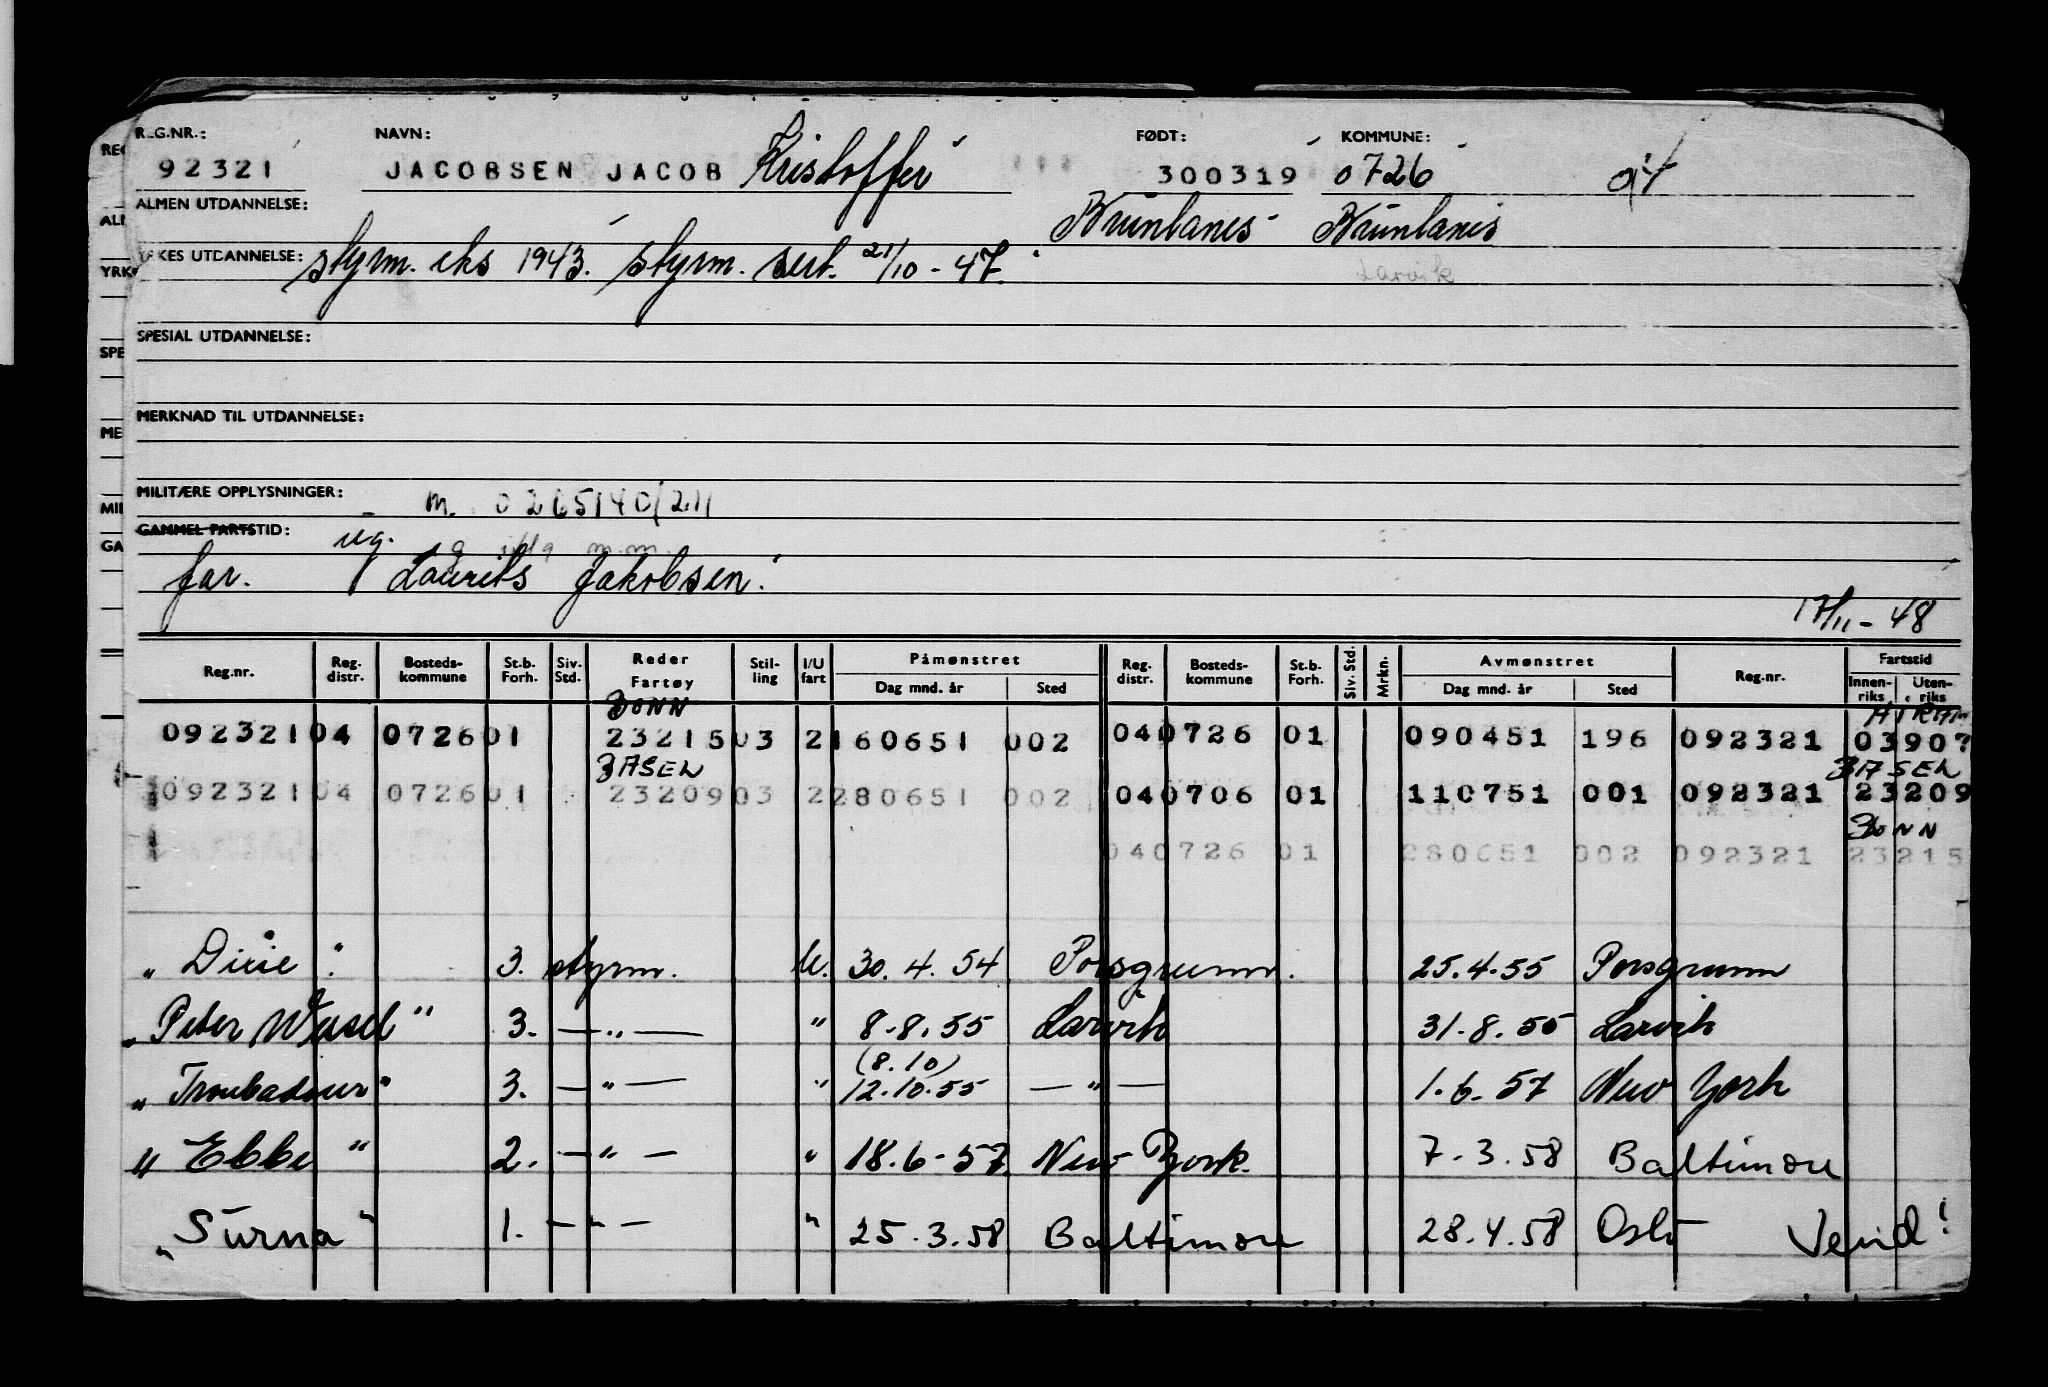 REG.NR.: NAVN: FØDT: KOMMUNE:
92321 JACOBSEN JACOB Kristoffer 300319 0726
ALMEN UTDANNELSE: Brunlanes Brunlanes
YRKES UTDANNELSE: styrm. eks 1943. styrm. sert. 21/10-47. Larvik
SPESIAL UTDANNELSE:
MERKNAD TIL UTDANNELSE:
MILITÆRE OPPLYSNINGER: m. 0265140/211
GAMMEL FARTSTID: ug.
far. Laurits Jakobsen.
17/11-48
Reg.nr. Reg. distr. Bosteds-kommune St.b. Forh. Siv. Std. Reder Fartøy Stil-ling I/U fart Påmønstret Dag mnd. år Sted Reg. distr. Bosteds-kommune St.b. Forh. Siv. Std. Mrkn. Avmønstret Dag mnd. år Sted Reg.nr. Fartstid Innen-riks Uten-riks
BONN
092321 04 0726 01 23215 03 2 160651 002 04 0726 01 090451 196 092321 03907
BASEL BASEL
092321 04 0726 01 23209 03 2 280651 002 04 0706 01 110751 001 092321 23209
BONN
04 0726 01 280651 002 092321 23215
" Dixie " 3. styrm. U. 30.4.54 Porsgrunn. 25.4.55 Porsgrunn
" Peter Wessel " 3. — " — " 8.8.55 Larvik 31.8.55 Larvik
(8.10)
" Troubadour " 3. — " — " 12.10.55 — " — 1.6.57 New York
" Ebbe " 2. — " — " 18.6-57. New York. 7.3.58 Baltimore
" Surna " 1. — " — " 25.3.58 Baltimore 28.4.58 Oslo Vend!